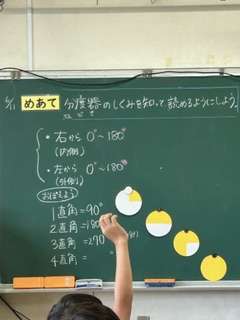 5/11 めあて 分度器のしくみを知って、読めるようにしよう。
・右から 0°~180°
(内側)
・左から 0°~180°
(外側)
おぼえよう
1直角=90°
2直角=180
3直角=270
4直角=